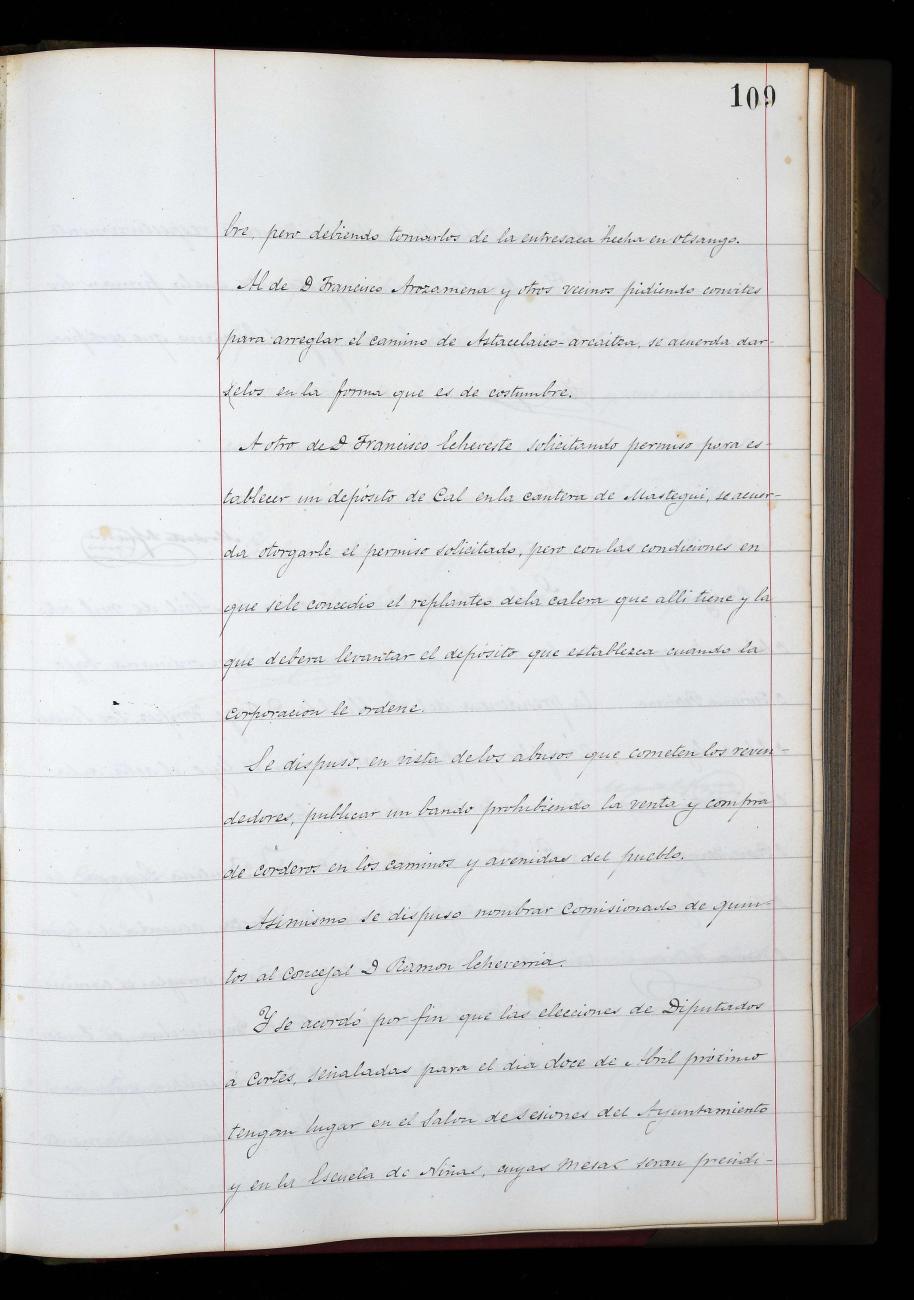 109
bre, pero debiendo tomarlos de la entresaca hecha en otsango.
Al de D Francisco Arozamena y otros vecinos pidiendo convites
para arreglar el camino de Astacelaico-arcaitza, se acuerda dar-
selos en la forma que es de costumbre.
A otro de D Francisco Echeveste solicitando permiso para es-
tablecer un depósito de Cal en la cantera de Mastegui, se acuer-
da otorgarle el permiso solicitado, pero con las condiciones en
que se le concedio el replanteo de la calera que alli tiene y la
que debera levantar el depósito que establezca cuando la
corporacion le ordene.
Se dispuso, en vista de los abusos que cometen los reven-
dedores, publicar un bando prohibiendo la venta y compra
de corderos en los caminos y avenidas del pueblo.
Asimismo se dispuso nombrar Comisionado de quin-
tos al Concejal D Ramon Echeverria.
Y se acordó por fin que las elecciones de Diputados
á Cortes, señaladas para el dia doce de Abril próximo
tengan lugar en el Salon de sesiones del Ayuntamiento
y en la Escuela de Niñas, cuyas mesas seran presidi-